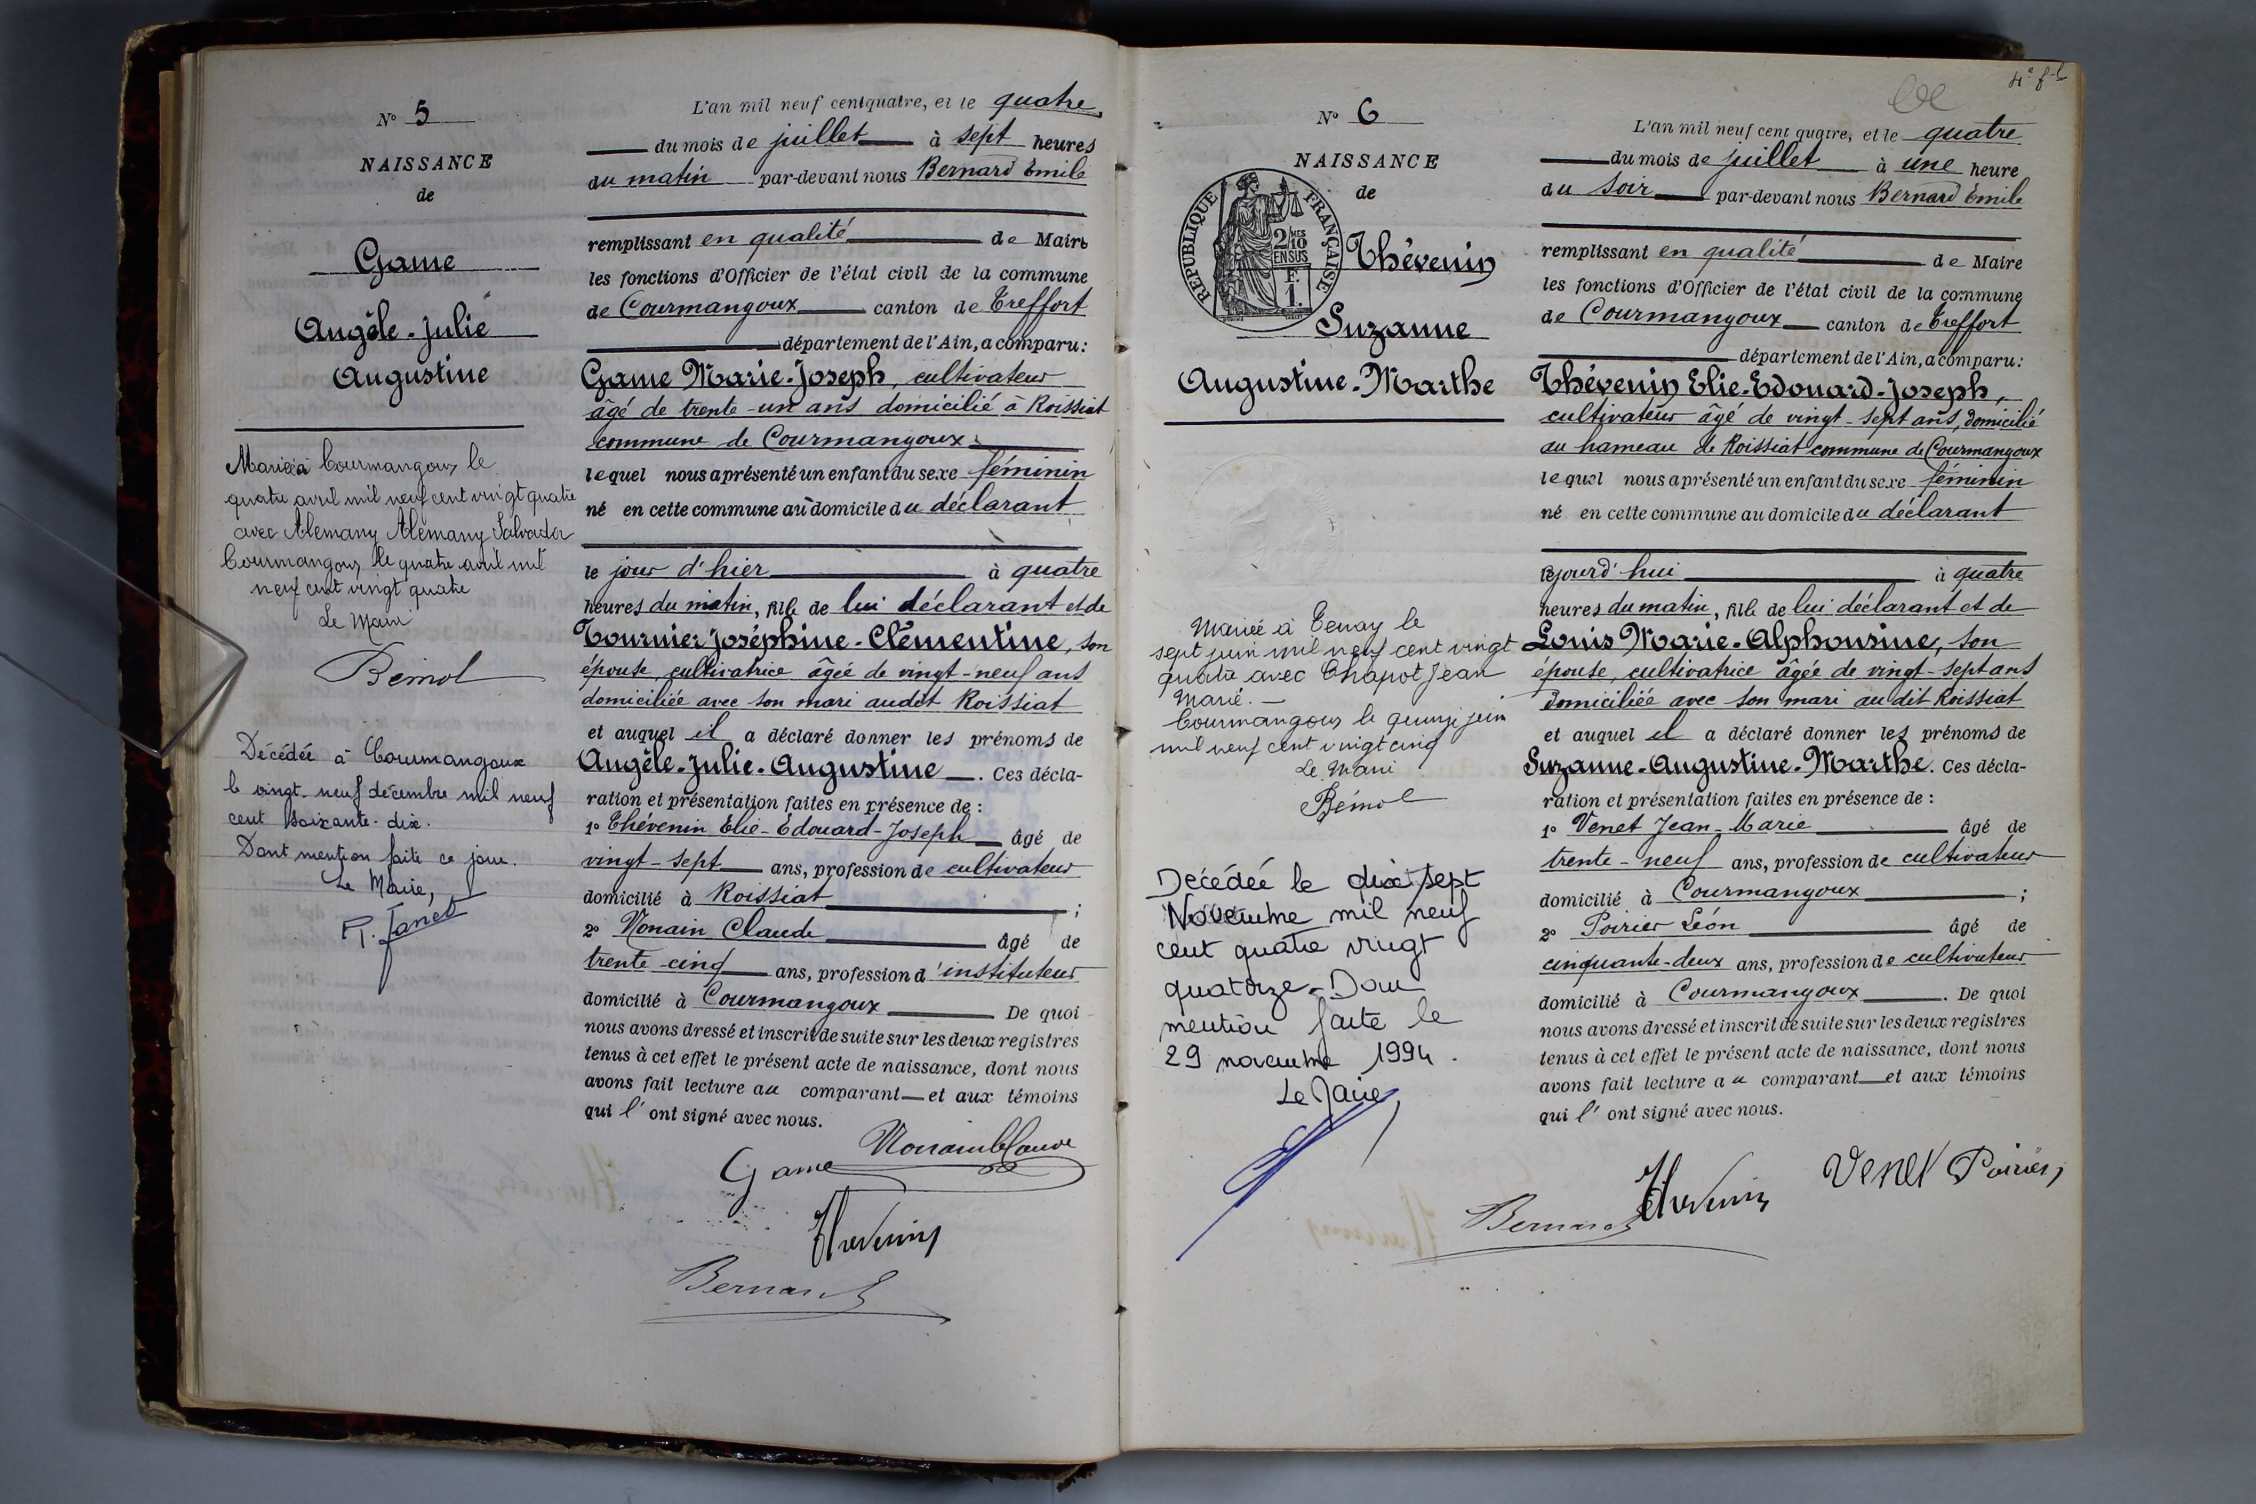 N° 5
NAISSANCE
de
Game
Angèle-Julie
Augustine
Mariée à Courmangoux le
quatre avril mil neuf cent vingt quatre
avec Alemany Alemany Salvador
Courmangoux le quatre avril mil
neuf cent vingt quatre
Le Maire
Décédée à Courmangoux
le vingt-neuf décembre mil neuf
cent soixante-dix.
Dont mention faite ce jour.
Le Maire,
L'an mil neuf cent quatre, et le quatre
du mois de juillet à sept heures
du matin par-devant nous Bernard Emile
remplissant en qualité de Maire
les fonctions d'Officier de l'état civil de la commune
de Courmangoux canton de Treffort
département de l'Ain, a comparu:
Game Marie-Joseph, cultivateur
âgé de trente-un ans domicilié à Roissiat
commune de Courmangoux
lequel nous a présenté un enfant du sexe féminin
né en cette commune au domicile du déclarant
le jour d'hier à quatre
heures du matin, fille de lui déclarant et de
Tournier Joséphine-Clémentine, son
épouse, cultivatrice âgée de vingt-neuf ans
domiciliée avec son mari audit Roissiat
et auquel il a déclaré donner les prénoms de
Angèle-Julie-Augustine. Ces décla-
ration et présentation faites en présence de :
1° Thévenin Elie-Édouard-Joseph âgé de
vingt-sept ans, profession de cultivateur
domicilié à Roissiat ;
2° Monain Claude âgé de
trente-cinq ans, profession d'instituteur
domicilié à Courmangoux De quoi
nous avons dressé et inscrit de suite sur les deux registres
tenus à cet effet le présent acte de naissance, dont nous
avons fait lecture au comparant et aux témoins
qui l'ont signé avec nous.
Game
Thévenin
Bernard
4e f-t
N° 6
NAISSANCE
de
REPUBLIQUE FRANÇAISE
2/10
EN SUS
F.
1.
Thévenin
Suzanne
Augustine-Marthe
Mariée à Tenay le
sept juin mil neuf cent vingt
quatre avec Chapot Jean
Marié.-
Courmangoux le quinze juin
mil neuf cent vingt cinq
Le Maire
Décédée le dix sept
Novembre mil neuf
cent quatre vingt
quatorze - Dont
mention faite le
29 novembre 1994.
Le Maire,
L'an mil neuf cent quatre, et le quatre
du mois de juillet à une heure
du soir par-devant nous Bernard Emile
remplissant en qualité de Maire
les fonctions d'Officier de l'état civil de la commune
de Courmangoux canton de Treffort
département de l'Ain, a comparu:
Thévenin Elie-Edouard-Joseph,
cultivateur âgé de vingt-sept ans, domicilié
au hameau de Roissiat commune de Courmangoux
lequel nous a présenté un enfant du sexe féminin
né en cette commune au domicile du déclarant
aujourd'hui à quatre
heures du matin, fille de lui déclarant et de
Louis Marie-Alphonsine, son
épouse, cultivatrice âgée de vingt-sept ans
domiciliée avec son mari audit Roissiat
et auquel il a déclaré donner les prénoms de
Suzanne-Augustine-Marthe. Ces décla-
ration et présentation faites en présence de :
1° Venet Jean-Marie âgé de
trente-neuf ans, profession de cultivateur
domicilié à Courmangoux ;
2° Poirier Léon âgé de
cinquante-deux ans, profession de cultivateur
domicilié à Courmangoux. De quoi
nous avons dressé et inscrit de suite sur les deux registres
tenus à cet effet le présent acte de naissance, dont nous
avons fait lecture au comparant et aux témoins
qui l'ont signé avec nous.
Venet Poirier
Bernard Thévenin